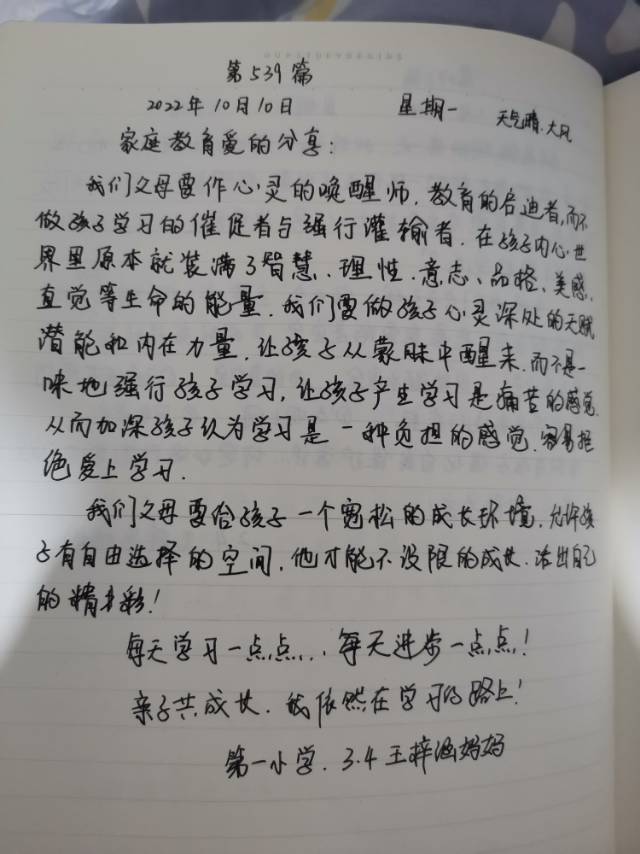 第539篇
2022年10月10日 星期一 天气晴.大风
家庭教育爱的分享:
我们父母要作心灵的唤醒师,教育的启迪者,而不
做孩子学习的催促者与强行灌输者.在孩子内心世
界里原本就装满了智慧、理性、意志、品格、美感、
直觉等生命的能量.我们要做孩子心灵深处的天赋
潜能和内在力量,让孩子从蒙昧中醒来.而不是一
味地强行孩子学习,让孩子产生学习是痛苦的感觉.
从而加深孩子认为学习是一种负担的感觉.容易拒
绝爱上学习.
我们父母要给孩子一个宽松的成长环境,允许孩
子有自由选择的空间,他才能不设限的成长.活出自己
的精彩!
每天学习一点点...每天进步一点点!
亲子共成长.我依然在学习的路上!
第一小学.3.4王梓涵妈妈